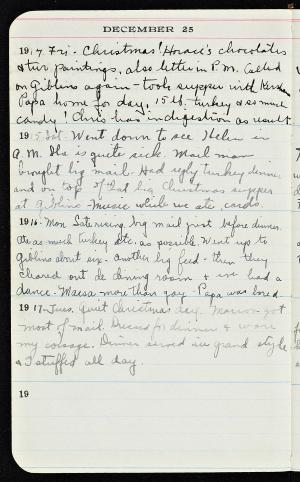 DECEMBER 25
1914. Fri. Christmas! Horace's chocolates
& two paintings, also letter in P.M. Called
on Giblins again - took supper with
Papa home for day, 15 lb. turkey & so much
candy! Chris has indigestion as result
1915 Sat. Went down to see Helen in
A.M. She is quite sick. Mail man
brought big mail. Had reg'ly turkey dinner
and on top of that big Christmas supper
at Giblins - Music while we ate, cards.
1916 - Mon. Late rising, big mail just before dinner.
Ate as much turkey etc. as possible. Went up to
Giblins about six - another big feed - then they
cleared out de dining room & we had a
dance - more than gay - Papa was bored
1917 - Tues. Quiet Christmas day. Marion got
most of mail. Dressed for dinner & wore
my corsage. Dinner served in grand style
& I stuffed all day.
19